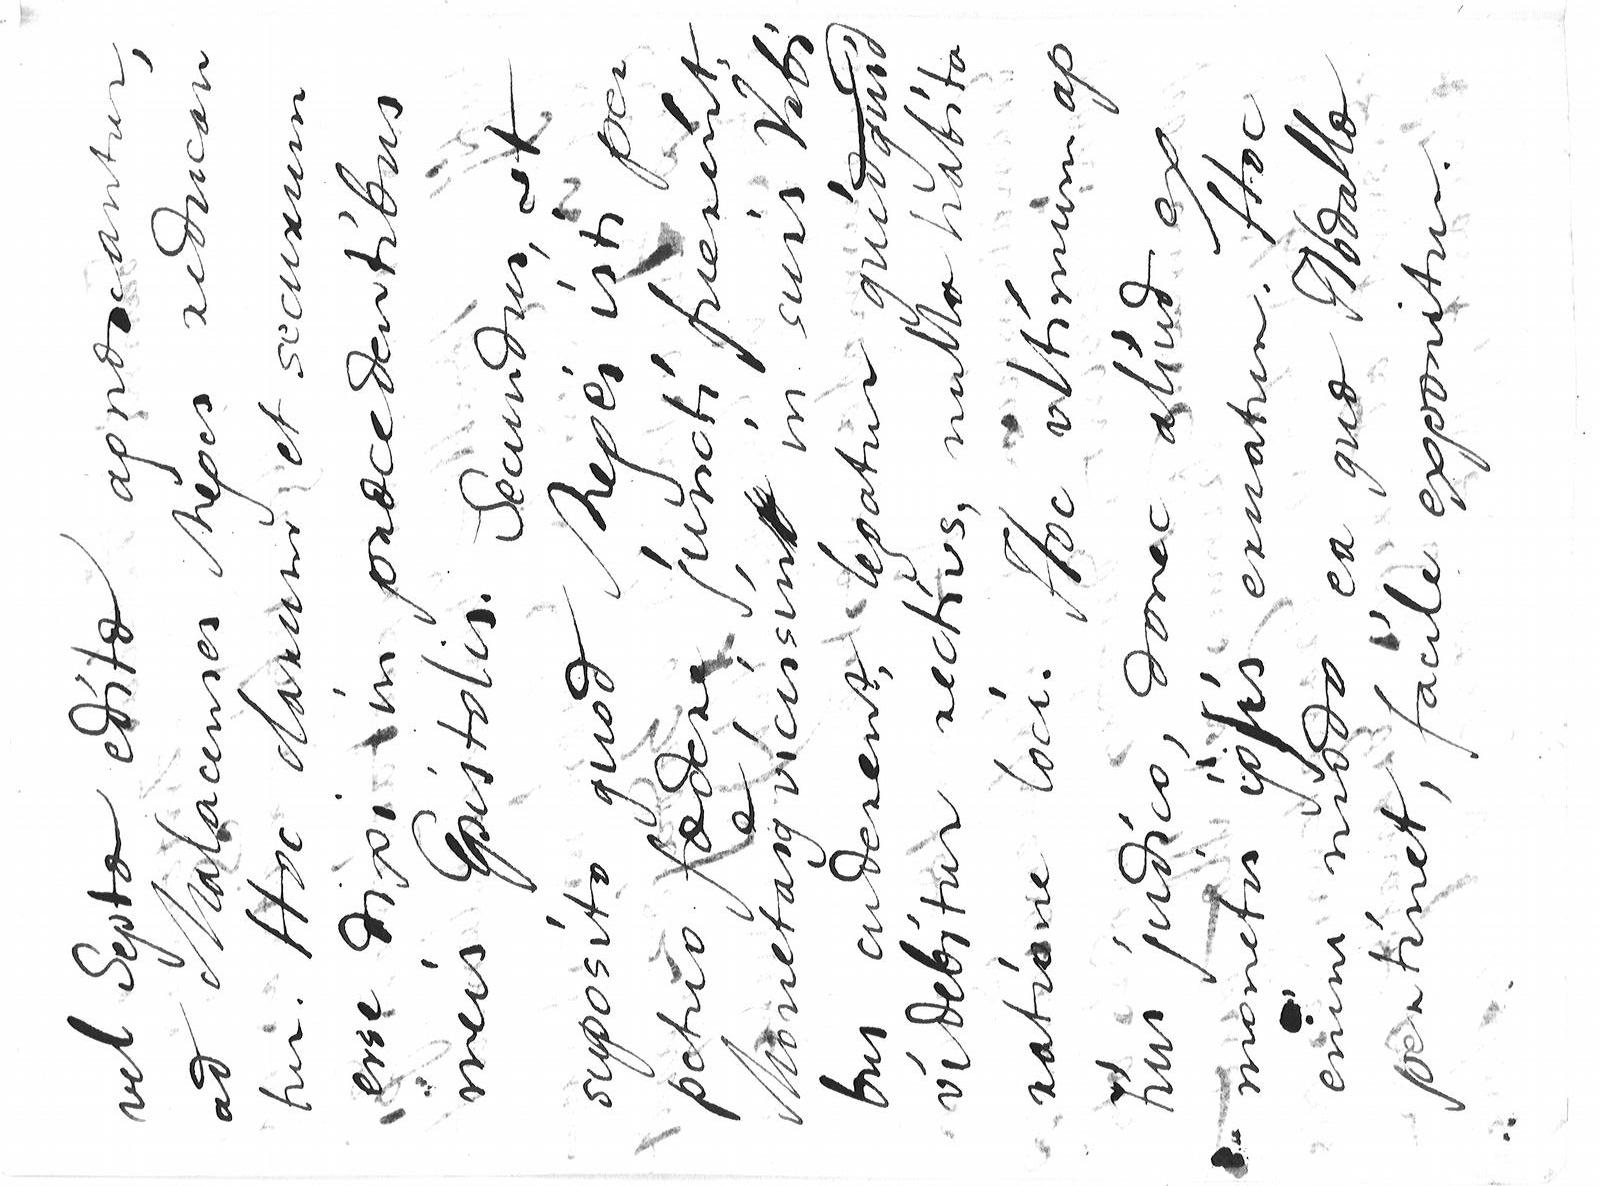 vel Septo edito aprocantur,
ad Malacenses Reges reducan
tur. Hoc clarum et securum
esse dixi in praecedentibus
meis Epistolis. Secundus, et
supposito quod Reges isti per
petuo foedere juncti fuerint,
Monetasq vicissim in suis Vrbi
bus cuderent, legatur quidquid
videbitur rectius, nulla habita
ratione loci. Hoc vltimum ap
tius judico, donec aliud ex
monetis ipsis eruatur. Hoc
enim modo ea quo Abdalla
pertinet, facile exponitur.